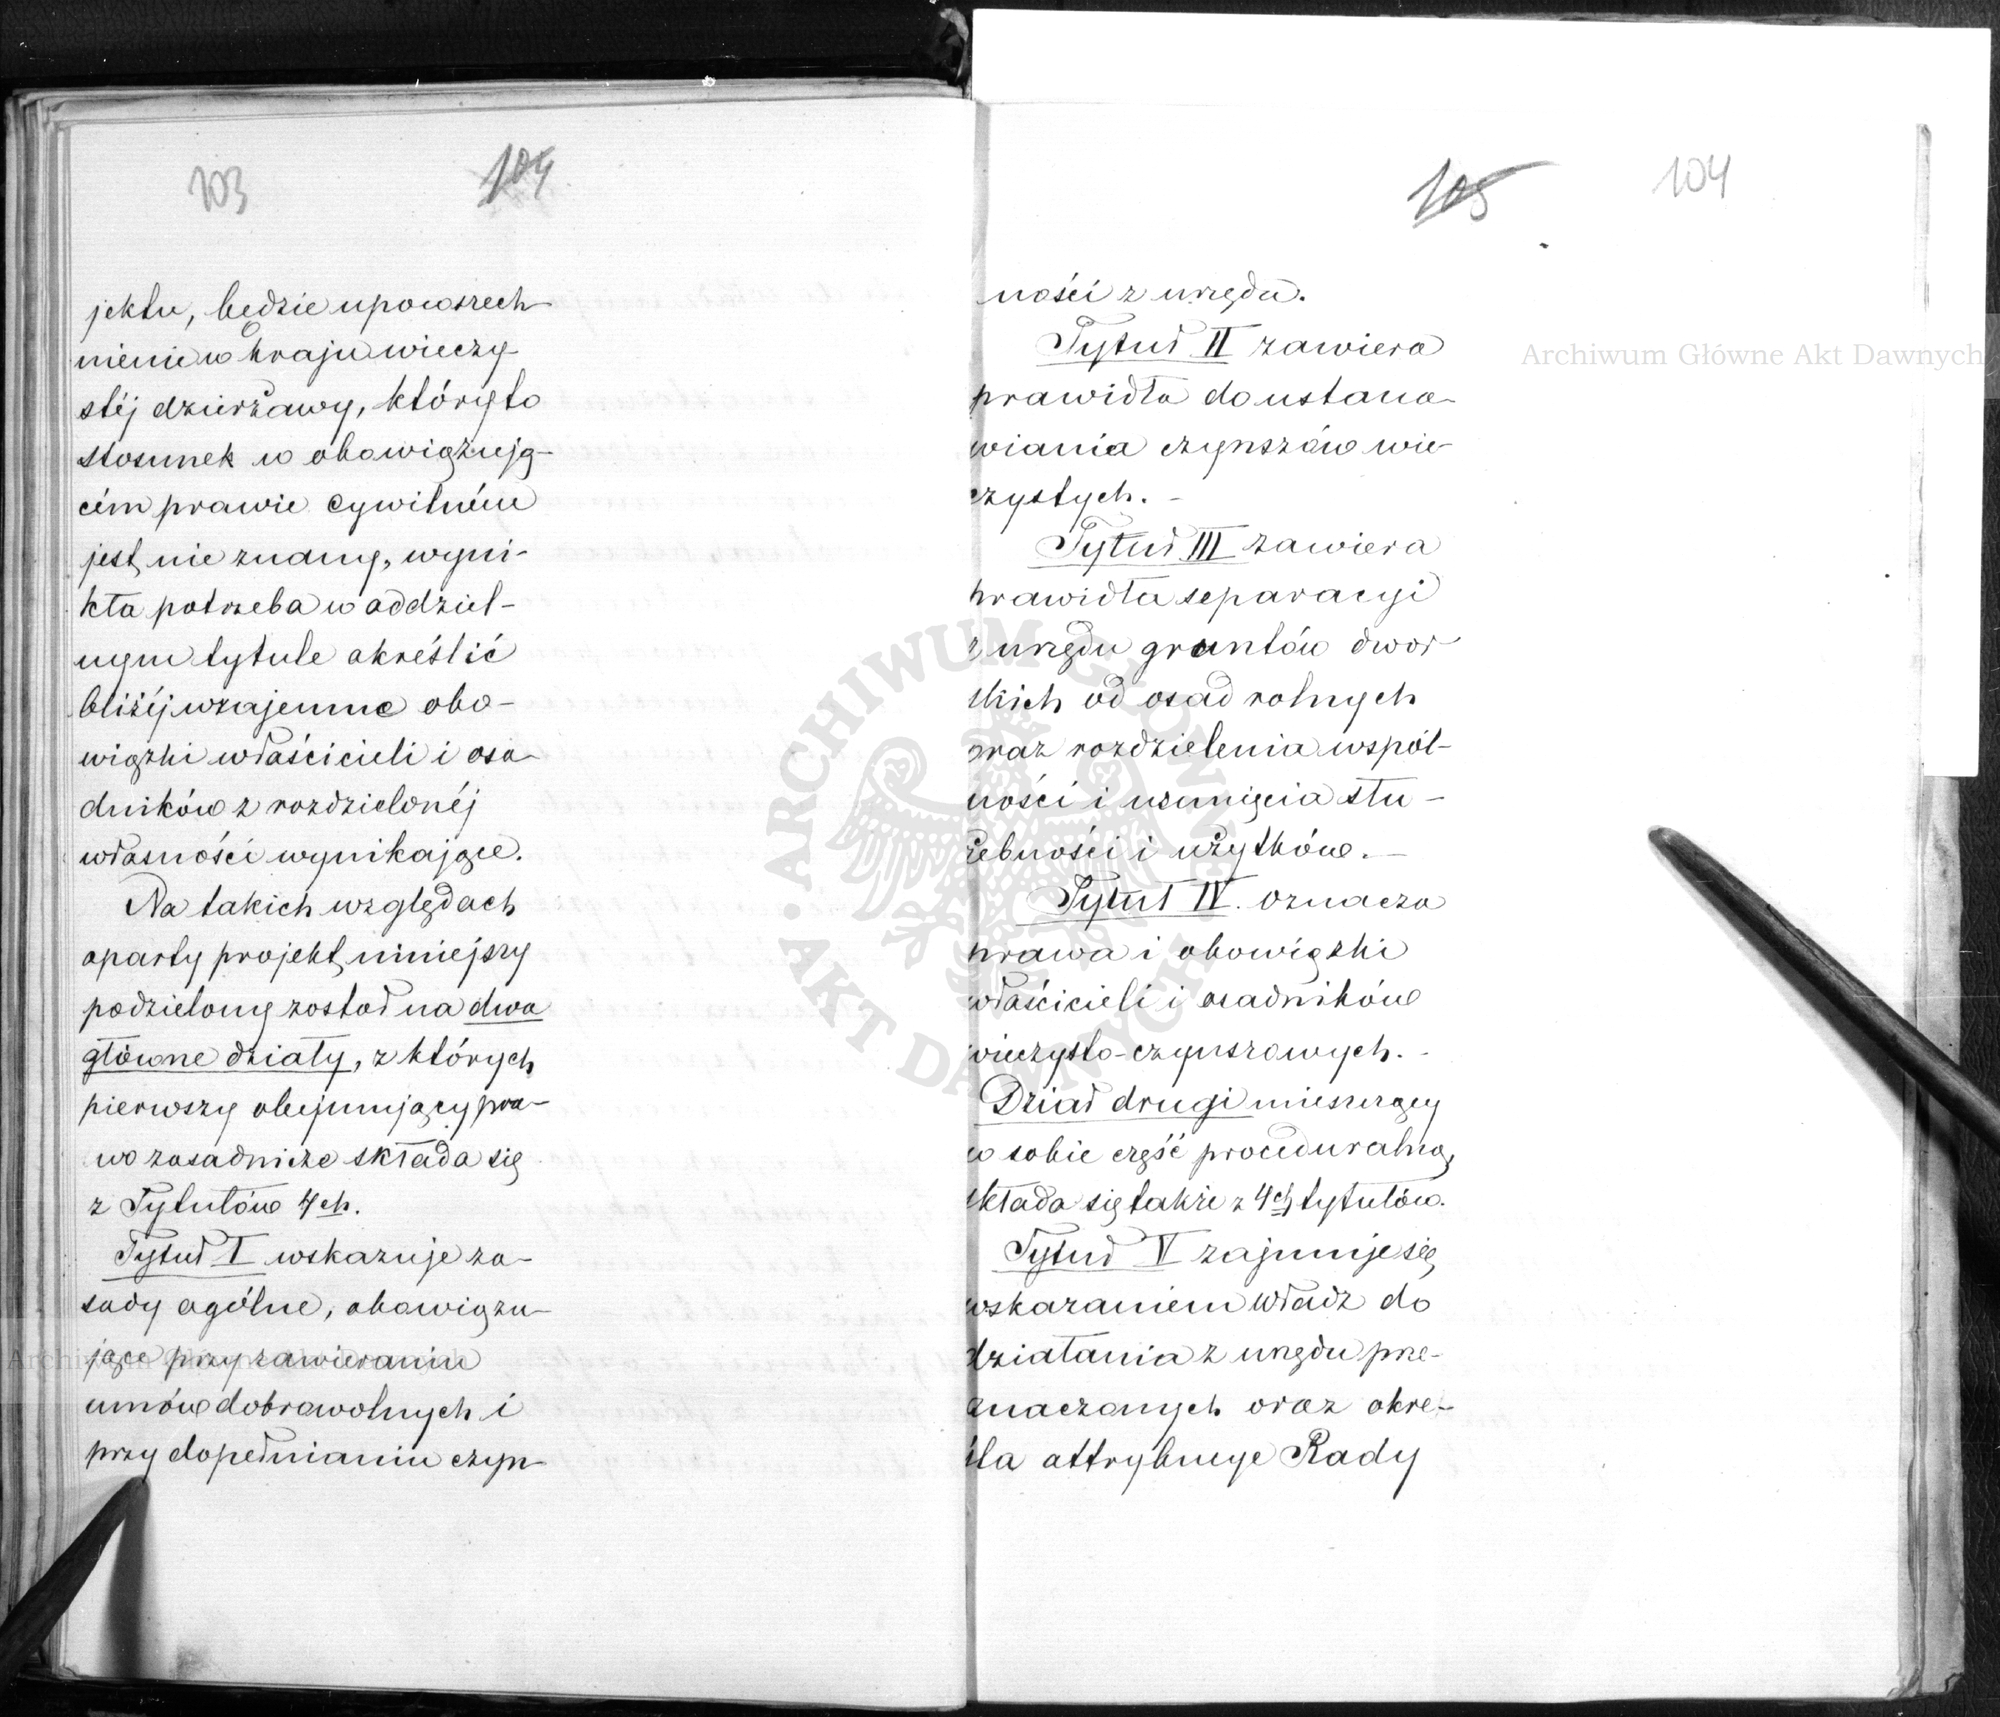 103
104
jektu, będzie upowszech-
nienie w kraju wieczy-
stéj dzierżawy, który to
stosunek w obowiązują-
cém prawie cywilném
jest nie znany, wyni-
kła potrzeba w oddziel-
nym tytule określić
bliżéj wzajemne obo-
wiązki właścicieli i osa-
dników z rozdzielonéj
własności wynikające.
Na takich względach
oparty projekt niniejszy
podzielony został na dwa
główne działy, z których
pierwszy obejmujący pra-
wo zasadnicze składa się
z Tytułów 4ch.
Tytuł I wskazuje za-
sady ogólne, obowiązu-
jące przy zawieraniu
umów dobrowolnych i
przy dopełnianiu czyn-
105
104
ności z urzędu.
Tytuł II zawiera
prawidła do ustano-
wiania czynszów wie-
czystych. -
Tytuł III zawiera
prawidła separacyi
z urzędu gruntów dwor-
skich od osad rolnych
oraz rozdzielenia wspól-
ności i usunięcia słu-
żebności i użytków. -
Tytuł IV. oznacza
prawa i obowiązki
właścicieli i osadników
wieczysto-czynszowych. -
Dział drugi mieszczący
w sobie część proceduralną,
składa się także z 4ch tytułów.
Tytuł V zajmuje się
wskazaniem władz do
działania z urzędu prze-
znaczonych oraz okre-
śla attrybucye Rady
Archiwum Główne Akt Dawnych
Archiwum Główne Akt Dawnych
ARCHIWUM GŁÓWNE · AKT DAWNYCH ·